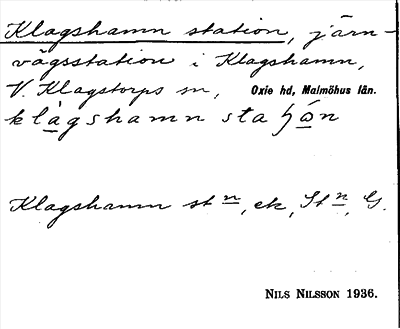 Klagshamn station, järn-
vägsstation i Klagshamn,
V. Klagstorps sn, Oxie hd, Malmöhus län.
klàgshamn staɧón
Klagshamn stn, ek, Stn, G.
NILS NILSSON 1936.